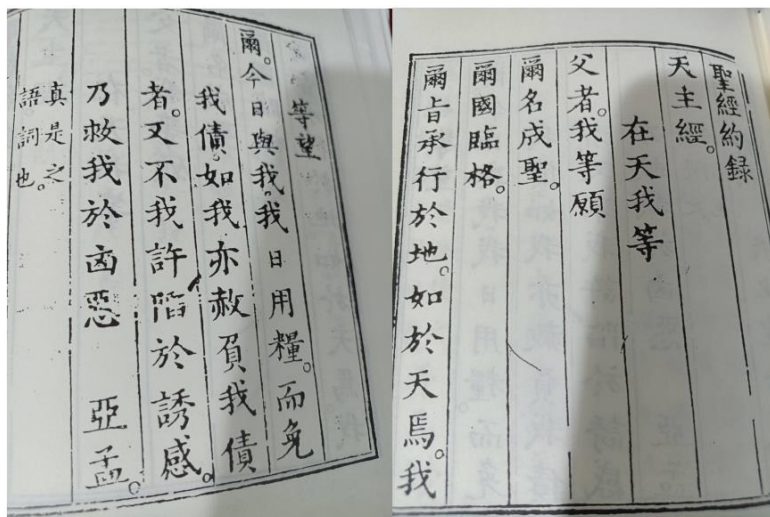 聖經約録
天主經。
在天我等
父者。我等願
爾名成聖。
爾國臨格。
爾旨承行於地。如於天焉。我
等望
爾。今日與我。我日用糧。而免
我債。如我亦赦負我債
者。又不我許陷於誘感。
乃救我於㐫惡 亞孟。
真是之
語詞也。